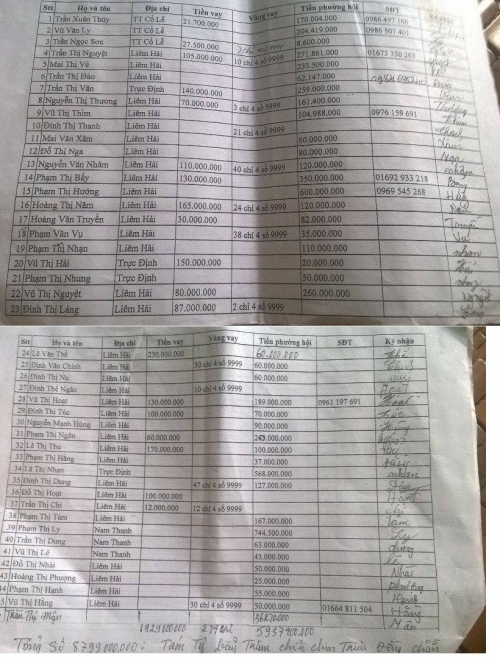 Stt Họ và tên Địa chỉ Tiền vay Vàng vay Tiền phường hội SĐT
1 Trần Xuân Thủy TT Cổ Lễ 21.700.000 170.004.000 0986 497 160
2 Vũ Văn Ly TT Cổ Lễ 204.419.000 0986 507 401
3 Trần Ngọc Sơn TT Cổ Lễ 27.500.000 8.600.000
4 Trần Thị Nguyệt Liêm Hải 105.000.000 271.861.000 01673 330 263
5 Mai Thị Vê Liêm Hải 10 chỉ 4 số 9999 233.500.000
6 Trần Thị Đào Liêm Hải 62.147.000
7 Trần Thị Vân Trực Định 140.000.000 259.000.000
8 Nguyễn Thị Thương Liêm Hải 70.000.000 161.400.000
9 Vũ Thị Thim Liêm Hải 3 chỉ 4 số 9999 104.988.000 0976 159 691
10 Đinh Thị Thanh Liêm Hải 21 chỉ 4 số 9999
11 Mai Văn Xâm Liêm Hải 80.000.000
12 Đỗ Thị Nga Liêm Hải 80.000.000
13 Nguyễn Văn Nhâm Liêm Hải 110.000.000 40 chỉ 4 số 9999 120.000.000
14 Phạm Thị Bẩy Liêm Hải 130.000.000 350.000.000 01692 933 218
15 Phạm Thị Hướng Liêm Hải 600.000.000 0969 545 268
16 Hoàng Thị Năm Liêm Hải 165.000.000 24 chỉ 4 số 9999 120.000.000
17 Hoàng Văn Truyền Liêm Hải 30.000.000 82.000.000
18 Phạm Văn Vụ Liêm Hải 38 chỉ 4 số 9999 35.000.000
19 Phạm Thị Nhạn Liêm Hải 110.000.000
20 Vũ Thị Hải Trực Định 150.000.000 20.000.000
21 Phạm Thị Nhung Trực Định 50.000.000
22 Vũ Thị Nguyệt Liêm Hải 80.000.000 260.000.000
23 Đinh Thị Láng Liêm Hải 87.000.000 2 chỉ 4 số 9999
Stt Họ và tên Địa chỉ Tiền vay Vàng vay Tiền phường hội SĐT Ký nhận
24 Lê Văn Thể Liêm Hải 230.000.000 60.000.000
25 Đinh Văn Chính Liêm Hải 30 chỉ 4 số 9999 60.000.000
26 Đinh Thị Nụ Liêm Hải 60.000.000
27 Đinh Thế Ngân Liêm Hải 10 chỉ 4 số 9999
28 Vũ Thị Hoạt Liêm Hải 130.000.000 189.000.000 0961 197 691
29 Đinh Thị Túc Liêm Hải 100.000.000 70.000.000
30 Nguyễn Mạnh Hùng Liêm Hải 90.000.000
31 Phạm Thị Ngân Liêm Hải 60.000.000 243.000.000
32 Lê Thị Thu Liêm Hải 170.000.000 100.000.000
33 Phạm Thị Hằng Liêm Hải 37.000.000
34 Lã Thị Nhạn Trực Định 568.000.000
35 Đinh Thị Dung Liêm Hải 47 chỉ 4 số 9999 127.000.000
36 Đỗ Thị Hoạt Liêm Hải 100.000.000
37 Trần Thị Chi Liêm Hải 12.000.000 12 chỉ 4 số 9999
38 Phạm Thị Tám Liêm Hải 167.000.000
39 Phạm Thị Ly Nam Thanh 744.500.000
40 Trần Thị Dung Nam Thanh 63.000.000
41 Vũ Thị Lê Nam Thanh 43.000.000
42 Đỗ Thị Nhài Liêm Hải 50.000.000
43 Hoàng Thị Phượng Liêm Hải 25.000.000
44 Phạm Thị Hạnh Liêm Hải 55.000.000
5 Vũ Thị Hằng Liêm Hải 30 chỉ 4 số 9999 50.000.000 01664 811 504
Trần Thị Mận Mận
5937400.000
Tổng Số 8799.000.000: Tám Tỷ bảy Trăm chín chín Triệu Đồng chẵn